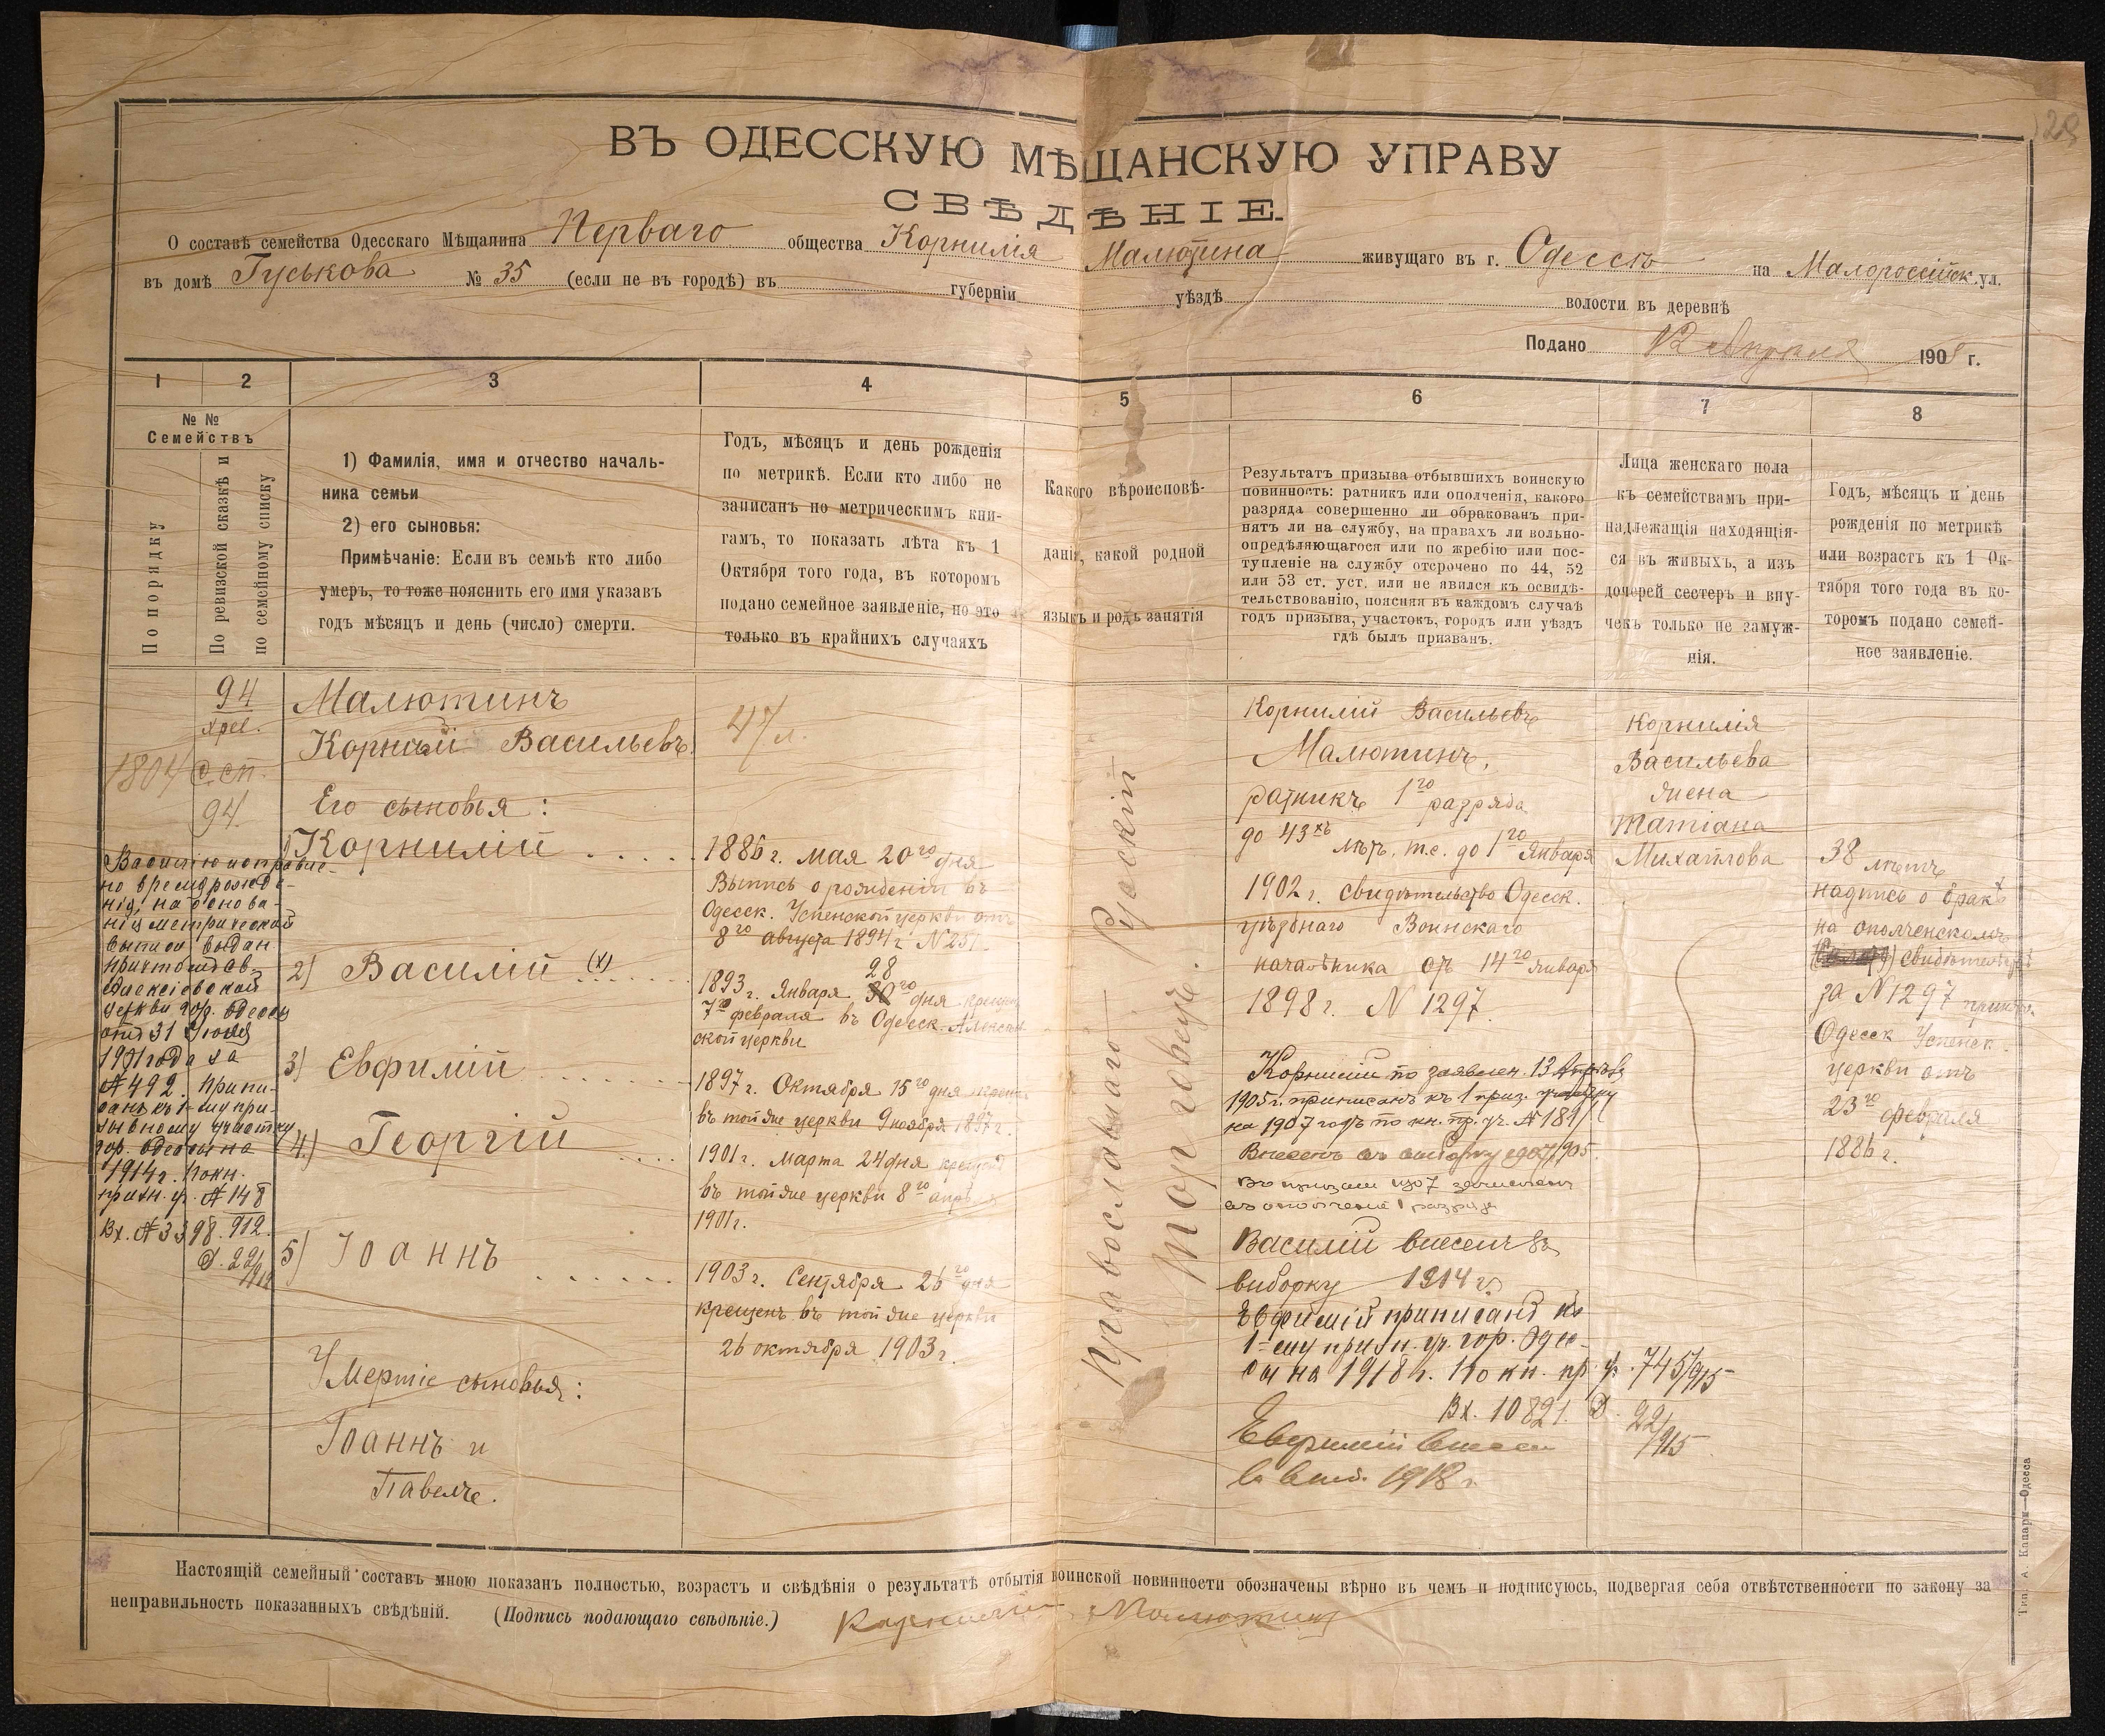 ВЪ ОДЕССКУЮ МѢЩАНСКУЮ УПРАВУ
СВѢДѢНІЕ.
О составѣ семейства Одесскаго Мѣщанина Перваго общества Корнилія Малютина живущаго въ г. Одессѣ на Малороссійск. ул.
въ домѣ Гуськова № 35 (если не въ городѣ) въ губерніи уѣздѣ волости въ деревнѣ
Подано 12 Апреля 1905 г.
1 2 3 4 5 6 7 8
№ №
Семействъ
По порядку
По ревизской сказкѣ и
по семейному списку
1) Фамилія, имя и отчество началь-
ника семьи
2) его сыновья:
Примѣчаніе: Если въ семьѣ кто либо
умеръ, то тоже пояснить его имя указавъ
годъ мѣсяцъ и день (число) смерти.
Годъ, мѣсяцъ и день рожденія
по метрикѣ. Если кто либо не
записанъ по метрическимъ кни-
гамъ, то показать лѣта къ 1
Октября того года, въ которомъ
подано семейное заявленіе, но это
только въ крайнихъ случаяхъ
Какого вѣроисповѣ-
данія, какой родной
языкъ и родъ занятія
Результатъ призыва отбывшихъ воинскую
повинность: ратникъ или ополченія, какого
разряда совершенно ли обракованъ при-
нятъ ли на службу, на правахъ ли вольно-
опредѣляющагося или по жребію или пос-
тупленіе на службу отсрочено по 44, 52
или 53 ст. уст. или не явился къ освидѣ-
тельствованію, поясняя въ каждомъ случаѣ
годъ призыва, участокъ, городъ или уѣздъ
гдѣ былъ призванъ.
Лица женскаго пола
къ семействамъ при-
надлежащія находящія-
ся въ живыхъ, а изъ
дочерей сестеръ и вну-
чекъ только не замуж-
нія.
Годъ, мѣсяцъ и день
рожденія по метрикѣ
или возрастъ къ 1 Ок-
тября того года въ ко-
торомъ подано семей-
ное заявленіе.
94
хрев.
1804 с. сп.
94.
Василію исправле-
но время рожде-
нія, на основа-
ніи метрической
выписи выдан
причтомъ Св.
Алексіевской
церкви гор. Одессы
отъ 31 Іюля
1911 года за
№ 492. Припи-
санъ къ 1-му при-
зывному участку
гор. Одессы на
1914 г. по кн.
призн. уч. № 148
Вх. № 3398. 912.
Малютинъ
Корнилій Васильевъ
Его сыновья:
1) Корнилій
2) Василій (х)
3) Евфимій
4) Георгій
5) Іоаннъ
Умершіе сыновья:
Іоаннъ и
Павелъ.
47 л.
1886 г. мая 20го дня
Выпись о рожденіи въ
Одесск. Успенской церкви отъ
8го августа 1894 г. N 257
28
1893 г. Января 30го дня крещен
7го февраля въ Одесск. Алексіев
ской церкви
1897 г. Октября 15го дня крещен
въ той же церкви 9 ноября 1897 г.
1901 г. Марта 24 дня крещен
въ той же церкви 8го апреля
1901 г.
1903 г. Сентября 26го дня
крещенъ въ той же церкви
26 октября 1903 г.
Православнаго Русскій
Торговецъ.
Корнилій Васильевъ
Малютинъ,
ратникъ 1го разряда
до 43хъ лѣтъ, т.е. до 1го Января
1902 г. свидѣтельство Одесск.
уѣзднаго Воинскаго
начальника отъ 14го января
1898 г. N 1297.
Корнилій по заявлен. 13 Апрѣля
1905 г. приписанъ къ 1 приз. участку
на 1907 годъ по кн. пр. уч. № 181
Внесенъ въ выборку
въ ополченіе 1 разряда
Василій внесенъ въ
выборку 1914 г.
Евфимій приписанъ къ
1-му призн. уч. гор. Одес-
сы на 1918 г. по кн. пр. уч. 745/915
Вх. 10821. Д. 22/915
Евфимій внесен
в выб. 1918 г.
Корнилія
Васильева
жена
Татіана
Михайлова
38 лѣтъ
надпись о бракѣ
на ополченскомъ
свидѣтельствѣ
за N 1297
Одесск Успенск.
церкви отъ
23го февраля
1886 г.
Настоящій семейный составъ мною показанъ полностью, возрастъ и свѣдѣнія о результатѣ отбытія воинской повинности обозначены вѣрно въ чемъ и подписуюсь, подвергая себя отвѣтственности по закону за
неправильность показанныхъ свѣдѣній. (Подпись подающаго свѣдѣніе.) Корнилій Малютин
Тип. А. Каппари—Одесса